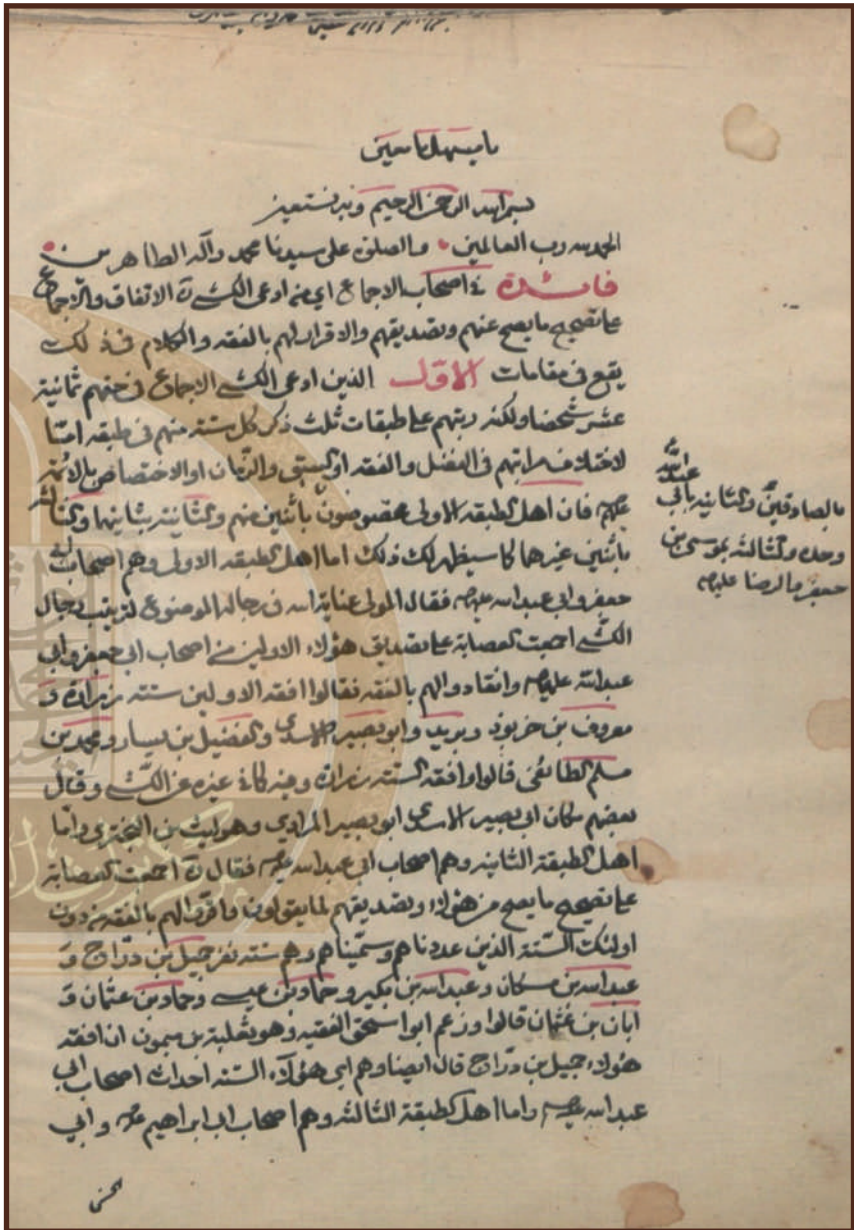 يا مسهل يا معين
بسم الله الرحمن الرحيم وبه نستعين
الحمد لله رب العالمين والصلوة على سيدنا محمد وآله الطاهرين
فائدة في اصحاب الاجماع اي من ادعى الكشي ره الاتفاق والاجماع
على تصحيح ما يصح عنهم وتصديقهم والاقرار لهم بالفقه والكلام في ذلك
يقع في مقامات الاول الذين ادعى الكشي الاجماع في حقهم ثمانية
عشر شخصا ولكنه رتبهم على طبقات ثلث ذكر كل ستة منهم في طبقه اما
لاختلاف مراتبهم في الفضل والفقه او السبق والزمان او الاختصاص بالائمة
عليهم فان اهل الطبقه الاولى مخصوصون باثنين منهم والثانية بثانيها والثالثة
باثنين غيرها كما سيظهر لك ذلك اما اهل الطبقه الاولى وهم اصحاب ابي
جعفر وابي عبد الله عليهم فقال المولى عناية الله في رجاله الموضوع لترتيب رجال
الكشي اجمعت العصابة على تصديق هؤلاء الاولين من اصحاب ابي جعفر وابي
عبد الله عليهم وانقادوا لهم بالفقه فقالوا افقه الاولين ستة زرارة و
معروف بن خربوذ وبريد وابو بصير الاسدي والفضيل بن يسار ومحمد بن
مسلم الطائفي قالوا وافقه الستة زرارة وفيه كما في غيره عن الكشي وقال
بعضهم مكان ابي بصير الاسدي ابو بصير المرادي وهو ليث بن البختري واما
اهل الطبقة الثانية وهم اصحاب ابي عبد الله عليه فقال ره اجمعت العصابة
على تصحيح ما يصح من هؤلاء وتصديقهم لما يقولون واقروا لهم بالفقه من دون
اولئك الستة الذين عددناهم وسميناهم وهم ستة نفر جميل بن دراج و
عبد الله بن مسكان وعبد الله بن بكير وحماد بن عيسى وحماد بن عثمان و
ابان بن عثمان قالوا وزعم ابو اسحق الفقيه وهو ثعلبة بن ميمون ان افقه
هؤلاء جميل بن دراج قال ايضا وهم اي هؤلاء الستة احداث اصحاب ابي
عبد الله عليه واما اهل الطبقة الثالثه وهم اصحاب ابي ابراهيم عليه وابي
الحسن
بالصادقين والثانية بابي عبد الله
وحده والثالثه بموسى بن
جعفر والرضا عليهم